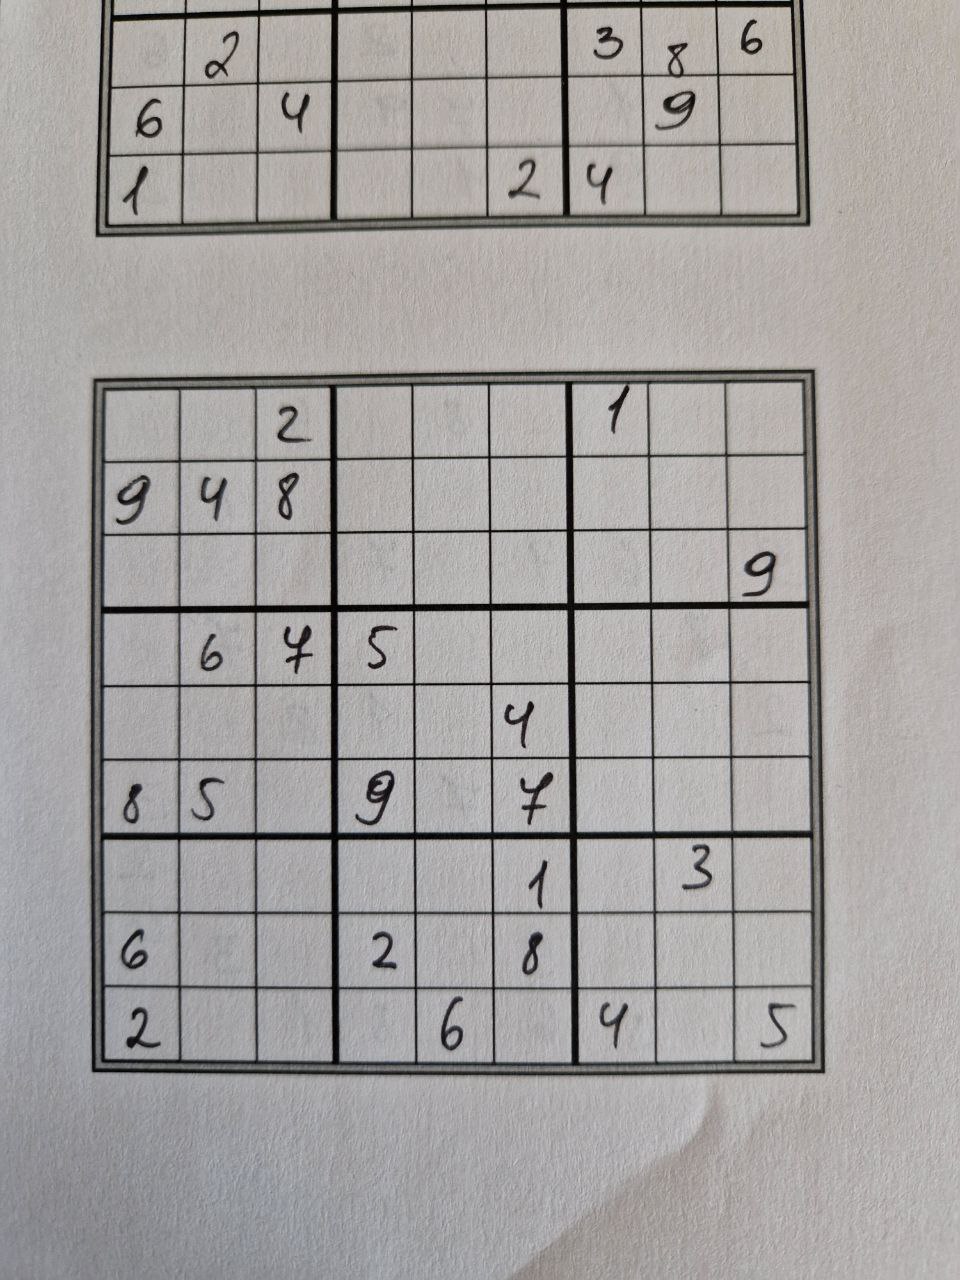 2 3 8 6
6 4 9
1 2 4
2 1
9 4 8
9
6 7 5
4
8 5 9 7
1 3
6 2 8
2 6 4 5